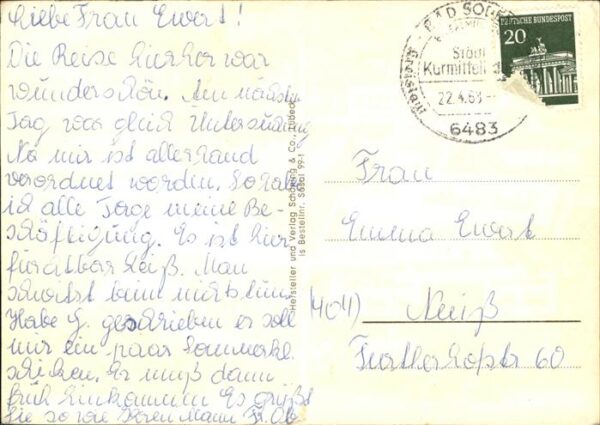 Liebe Frau Ewert!
Die Reise hierher war
wunderschön. Am nächsten
Tag war gleich Untersuchung
Na mir ist allerhand
verordnet worden. So habe
ich alle Tage meine Be-
schäftigung. Es ist hier
furchtbar heiß. Man
schwitzt beim nichts tun.
Habe G. geschrieben er soll
mir ein paar Sommerkl.
schicken. Er muß dann
früh hinkommen Es grüßt
Sie so wie Ihren Mann Fr.
Hersteller und Verlag Schöning & Co., Lübeck
Bestellnr. Sosal 99-1
BAD SO
Stadt
Kurmittel
22.4.68
6483
DEUTSCHE BUNDESPOST
20
Frau
Emma Ewert
(404) Neuß
Further Hofstr 60